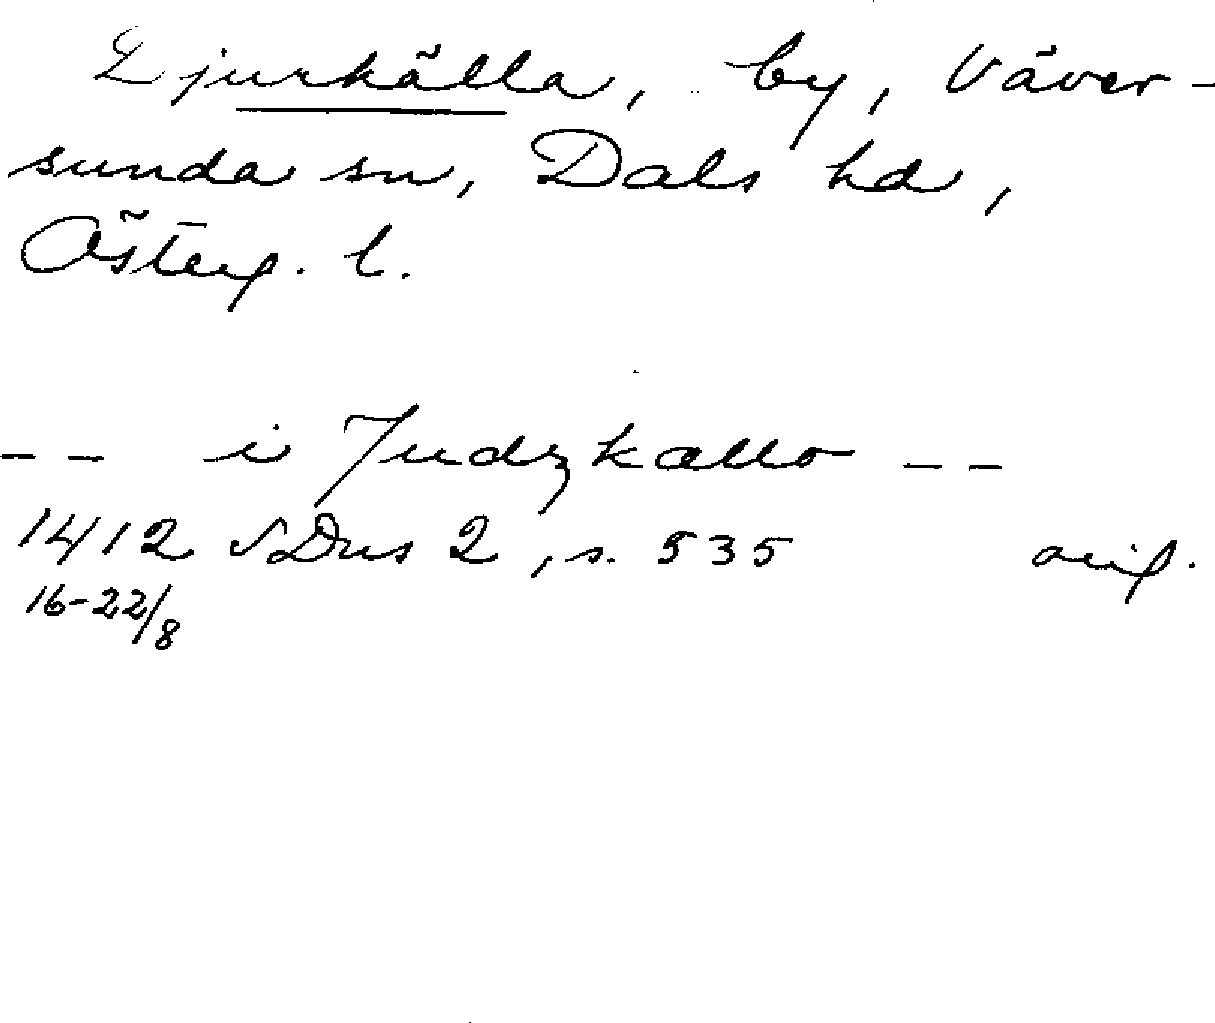 Ljurkälla, by, Väver-
sunda sn, Dals hd,
Österg. l.
-- i Judzkællo --
1412 SDns 2, s. 535 orig.
16-22/8